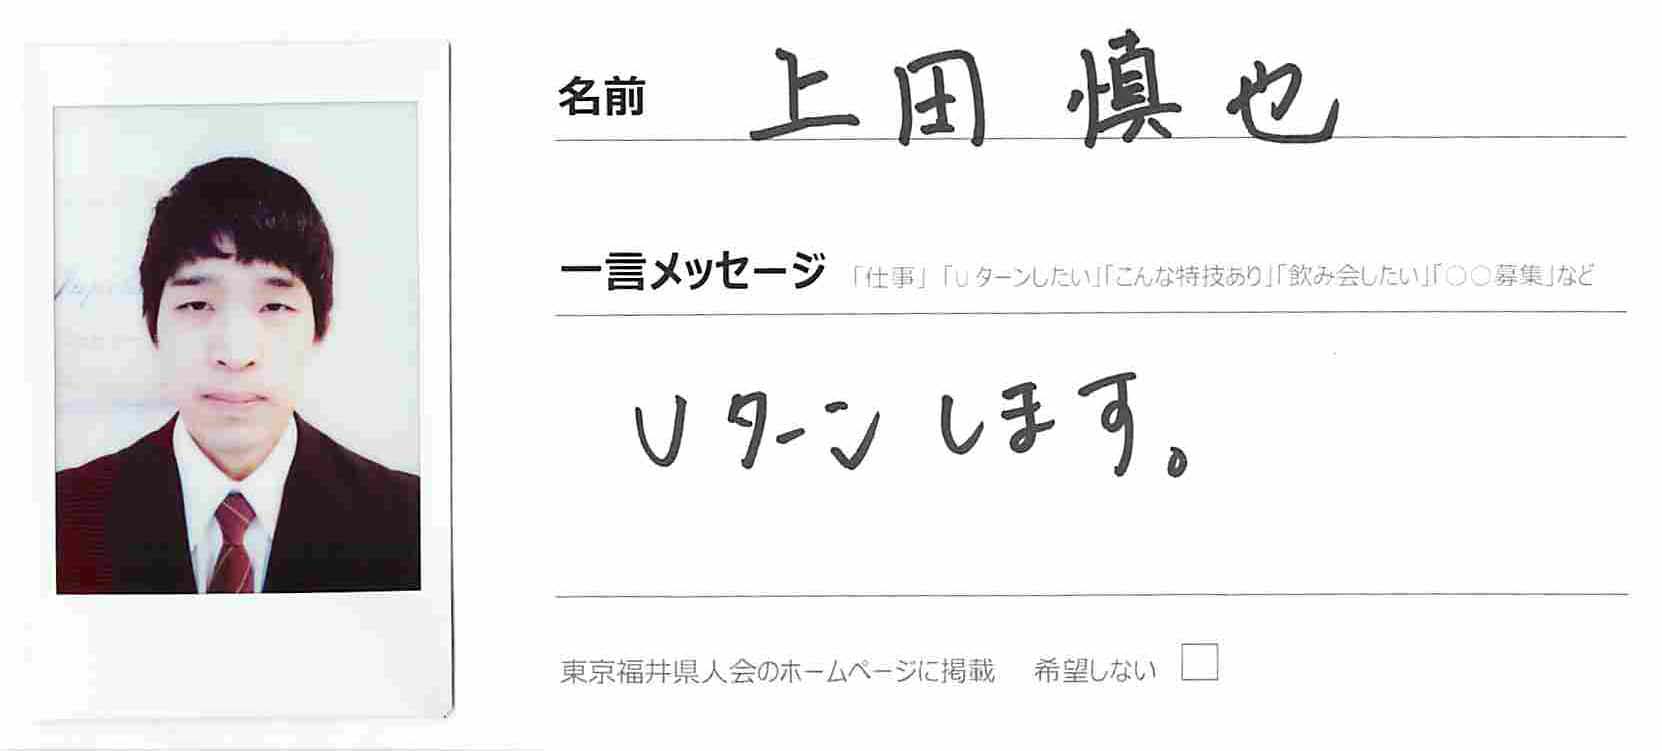 名前 上田 慎也
一言メッセージ 「仕事」「Uターンしたい」「こんな特技あり」「飲み会したい」「○○募集」など
Uターンします。
東京福井県人会のホームページに掲載 希望しない □